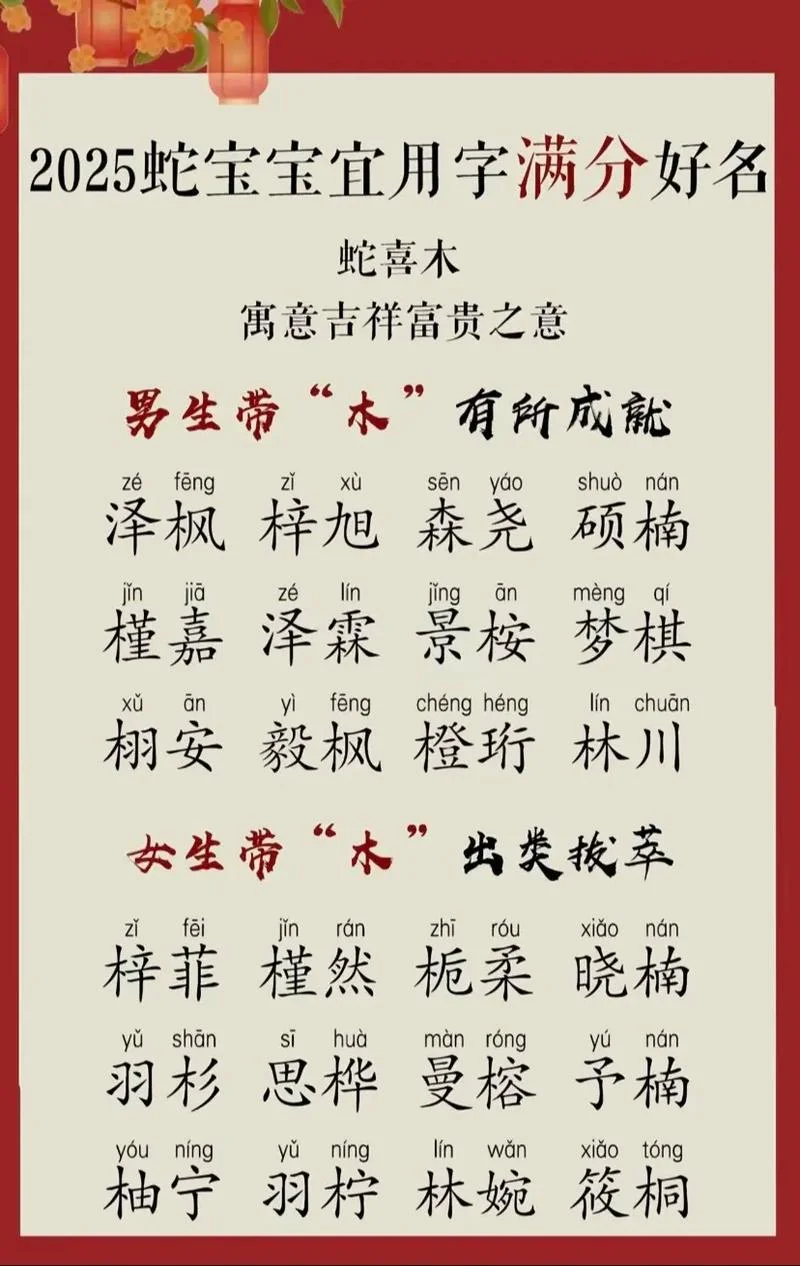 2025蛇宝宝宜用字满分好名
蛇喜木
寓意吉祥富贵之意
男生带“木”有所成就
zé fēng zǐ xù sēn yáo shuò nán
泽枫 梓旭 森尧 硕楠
jǐn jiā zé lín jǐng ān mèng qí
槿嘉 泽霖 景桉 梦棋
xǔ ān yì fēng chéng héng lín chuān
栩安 毅枫 橙珩 林川
女生带“木”出类拔萃
zǐ fēi jǐn rán zhī róu xiǎo nán
梓菲 槿然 栀柔 晓楠
yǔ shān sī huà màn róng yú nán
羽杉 思桦 曼榕 予楠
yóu níng yǔ níng lín wǎn xiǎo tóng
柚宁 羽柠 林婉 筱桐